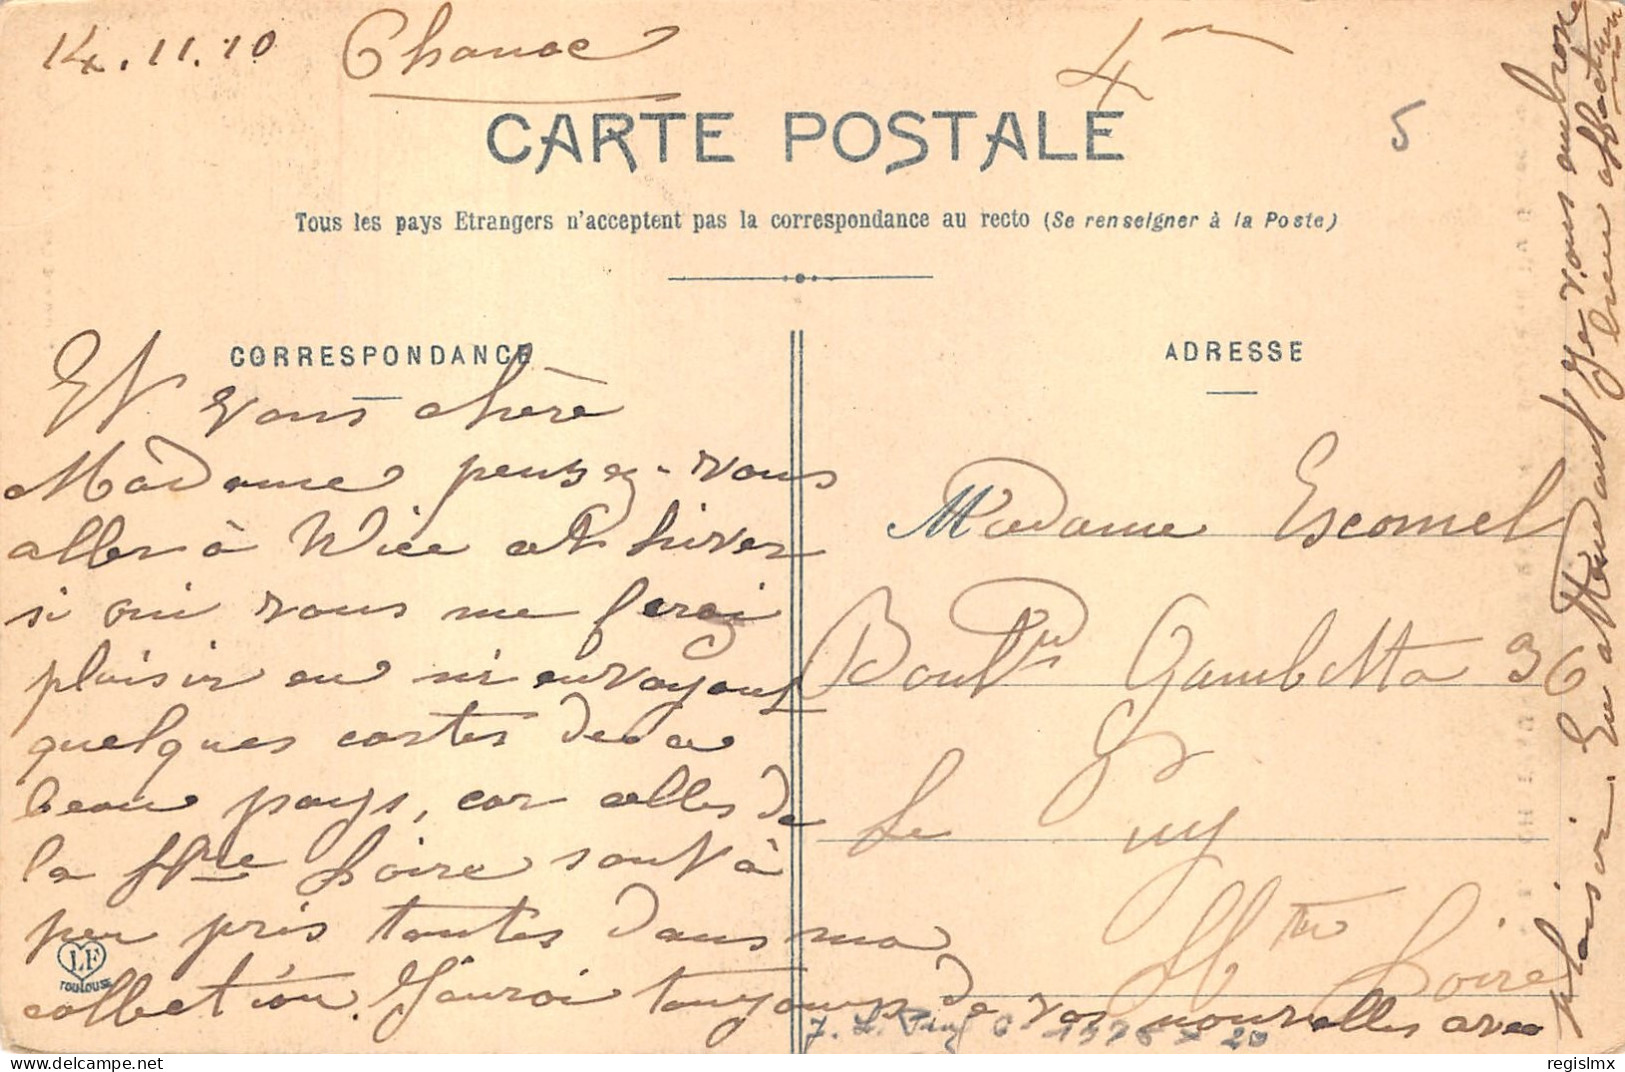 14.11.10 Chanac
4
5
CARTE POSTALE
Tous les pays Etrangers n'acceptent pas la correspondance au recto (Se renseigner à la Poste)
CORRESPONDANCE
Et vous chère
Madame pensez-vous
aller à Nice cet hiver
si oui vous me ferez
plaisir en m'envoyant
quelques cartes de ce
beau pays, car celles de
la Hte Loire sont à
peu près toutes dans ma
collection. J'aurai toujours de vos nouvelles avec
plaisir. En attendant je vous embrasse
bien affectueu
LF
TOULOUSE
ADRESSE
Madame Escomel
Boulv Gambetta 36
Le Puy
Hte Loire
1976 x 20
regislmx
delcampe.net